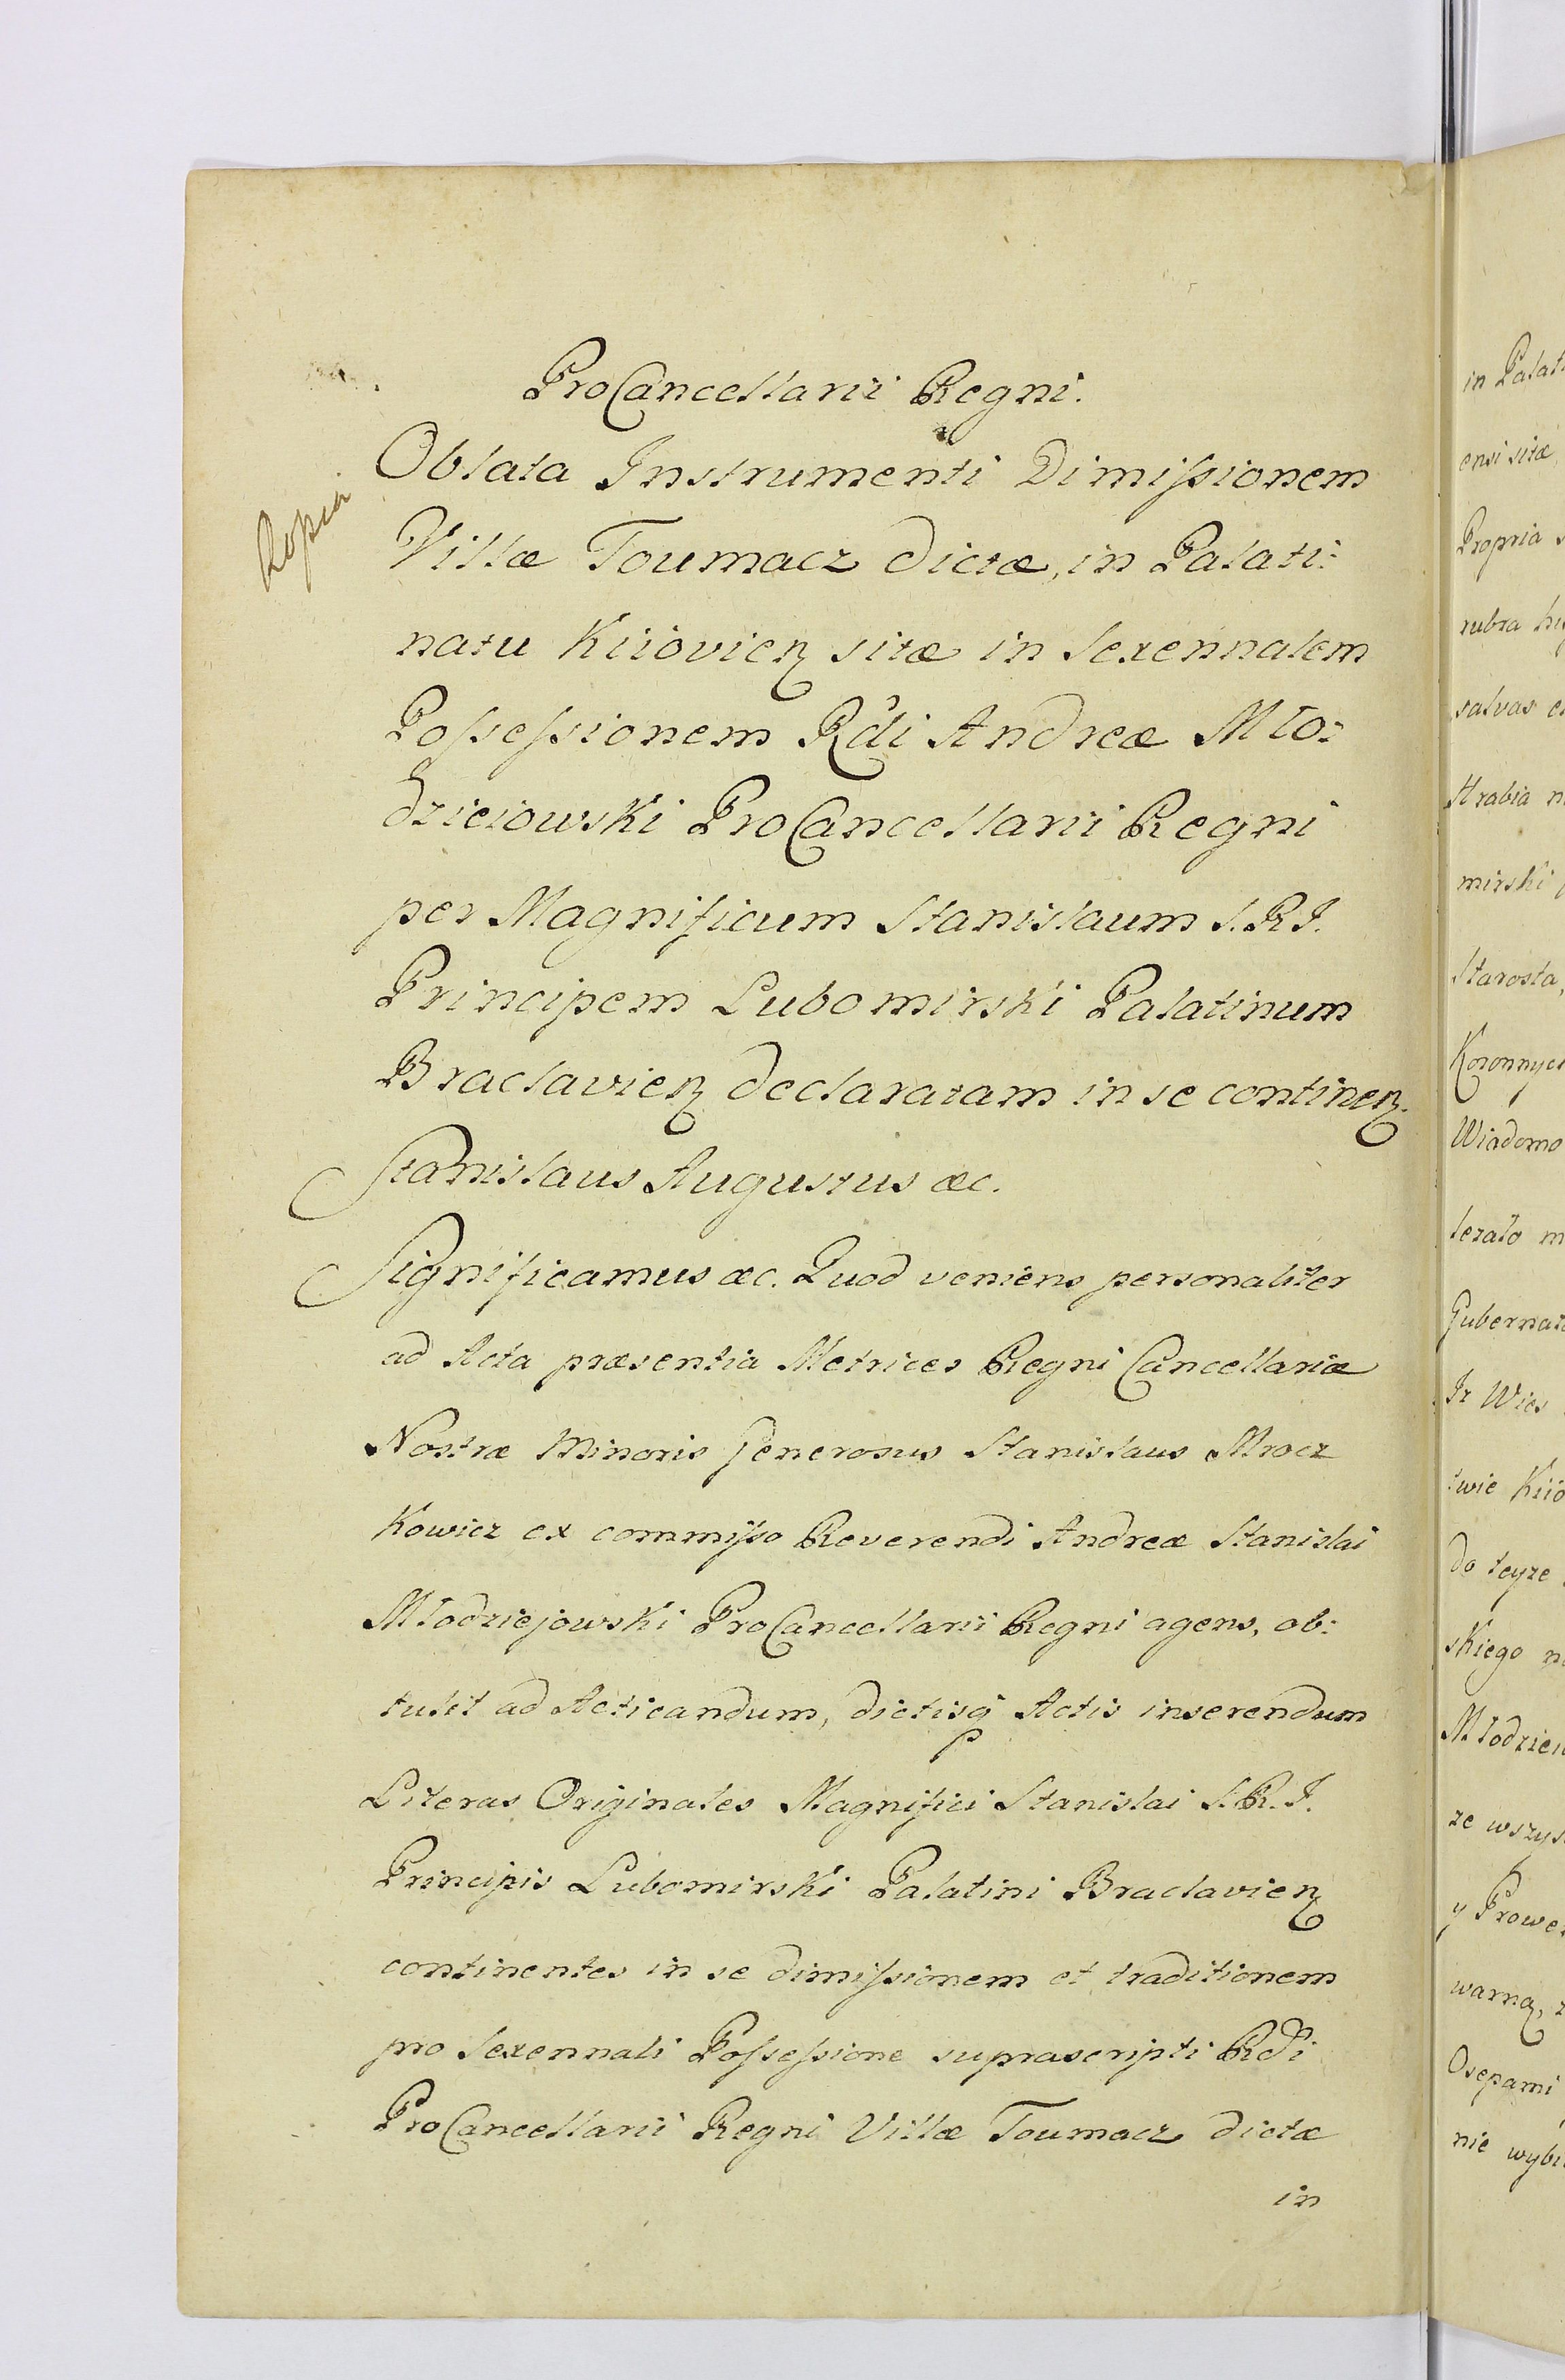 ProCancellarii Regni.
Kopia
Oblata Instrumenti Dimissionem
Villæ Toumacz dictæ, in Palati:
natu Kiiovien sitæ in Sexennalem
Possessionem Rdi Andreæ Mło:
dzieiowski ProCancellarii Regni
per Magnificum Stanislaum S.R.I.
Principem Lubomirski Palatinum
Braclavien declaratam in se continen.
Stanislaus Augustus æc.
Significamus æc. Quod veniens personaliter
ad Acta præsentia Metrices Regni Cancellariæ
Nostræ Minoris Generosus Stanislaus Mrocz
Kowicz ex commisso Reverendi Andreæ Stanislai
Młodziejowski ProCancellarii Regni agens, ob:
tulit ad Acticandum, dictisq Actis inserendum
Literas Originales Magnifici Stanislai S.R.I.
Principis Lubomirski Palatini Braclavien
continentes in se dimissionem et traditionem
pro Sexennali Possessione suprascripti Rdi
ProCancellarii Regni Villæ Toumacz dictæ
in
in Palat
ensi sitæ
Propria
rubra
salvas
Hrabia
mirski
Starosta,
Koronnych
Wiadomo
leżało
Gubernat
Iż Wies
twie Kiio
do teyze
skiego
Młodzie
ze wszys
y Prowe
warną,
Osepami
nie wybi